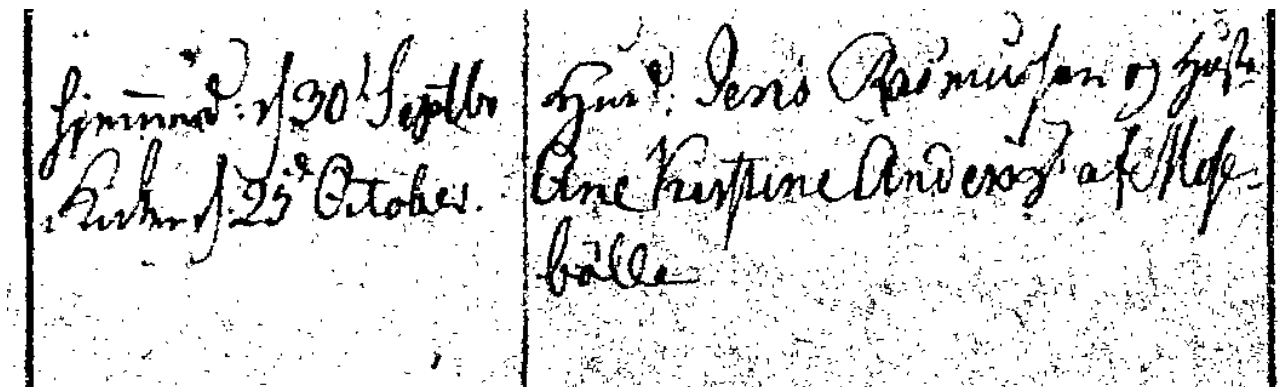 hjemmed: d 30t Septbr
Kirken d 25d October.
Huusmd. Jens Rasmussen og Hust:
Ane Kirstine Andersd: af Mose-
bölle